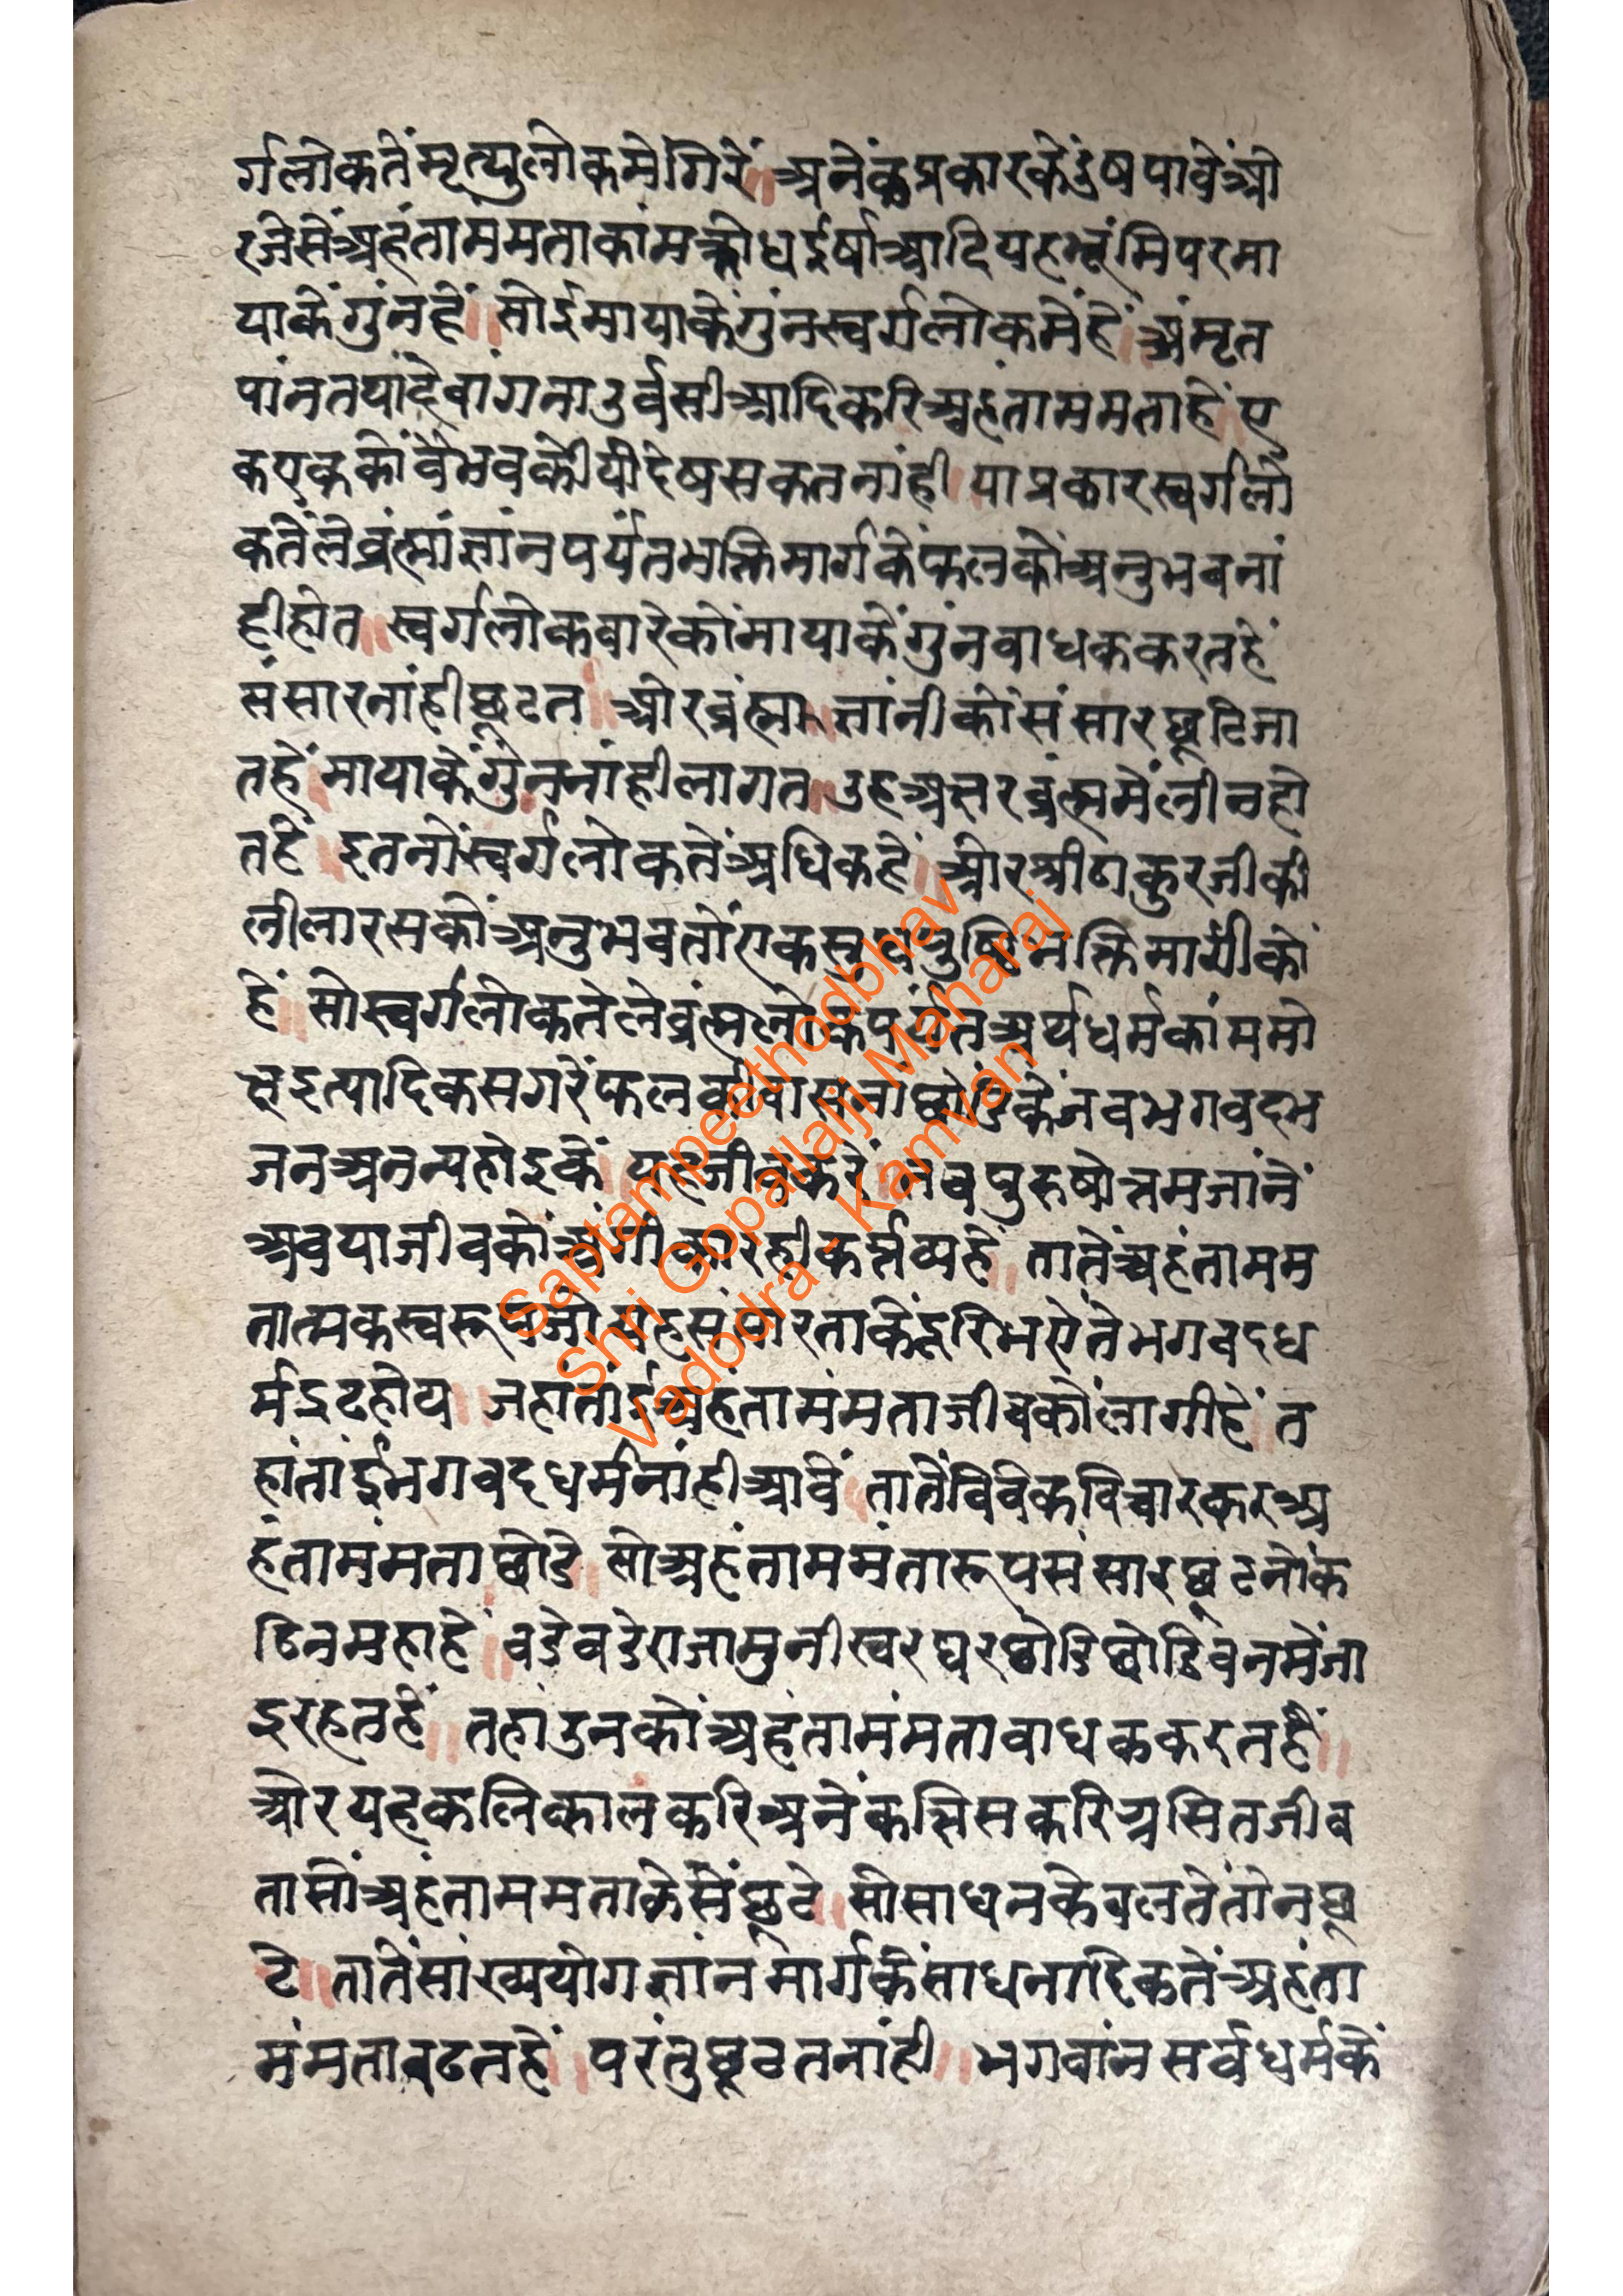 र्गलोकतेंमृत्युलोकमेगिरें॥अनेंकप्रकारकेदुंषपावेंओ
रजेसेंअहंतामंमताकांमक्रोधईर्षाआदियहभूंमिपरमा
याकेंगुंनहें॥सोईमायाकेंगुंनस्वर्गलोकमेंहें॥अंमृत
पांनतथांदेवांगनाउर्वसीआदिकरिअहंतामंमताहें॥ए
कएककोंवैभवकोंयीदेषसकतनांही॥याप्रकारस्वर्गलो
कतेंलेब्रंह्मांज्ञांनपर्यंतभक्तिमार्गकेंफलकोंअनुभवनां
हीहोत॥स्वर्गलोकवारेकोंमायाकेंगुंनबाधककरतहें
संसारनांहीछूटत॥ओरब्रंह्मज्ञांनीकोंसंसारछूटिजा
तहें॥मायाकेंगुंननांहीलागत॥उहअक्षरब्रंह्ममेंलीनहो
तहें॥इतनोंस्वर्गलोकतेंअधिकहें॥ओरश्रीठाकुरजीकी
लीलारसकोंअनुभवतोंएकसुधपुष्टिभक्तिमार्गीकों
हें॥सोस्वर्गलोकतेलेब्रंह्मलोकपर्यंतअर्थधर्मकांममो
क्षइत्यादिकसगरेंफलकीवासनांछोडिकेंजबभगवदभ
जनअनन्यहोइकें॥यहजीवकरें॥तबपुरुषोत्तमजांनें
अबयाजीवकोंअंगीकारहीकर्त्तव्यहें॥तातेंअहंतामम
तात्मकस्वरूपजोयहसंसारताकेंदूरिभऐतेभगवदध
र्मद्रढहोय॥जहांतांईअहंतामंमताजीवकोंलागीहें॥त
हांतांईभगवदधर्मनांहीआवें॥तातेंविवेकविचारकरअ
हंतामंमताछोडे॥सोअहंतामंमतारूपसंसारछूटनोंक
ठिनमहाहें॥बडेबडेराजामुनीस्वरघरछोडिछोडिवनमेंजा
इरहतहें॥तहांउनकोंअहंतामंमताबाधककरतहें॥
ओरयहकलिकालकरिअनेंकत्रिसकरिग्रसितजीव
तासोंअहंतामंमताकेसेंछूटे॥सोसाधनकेबलतेंतोनछू
टे॥तातेंसांख्ययोगज्ञांनमार्गकेंसाधनादिकतेंअहंता
मंमताबढतहें॥परंतुछूटतनांही॥भगवांनसर्वधर्मकें
Saptampeethodbhav
Shri Gopallalji Maharaj
Vadodra - Kamvan